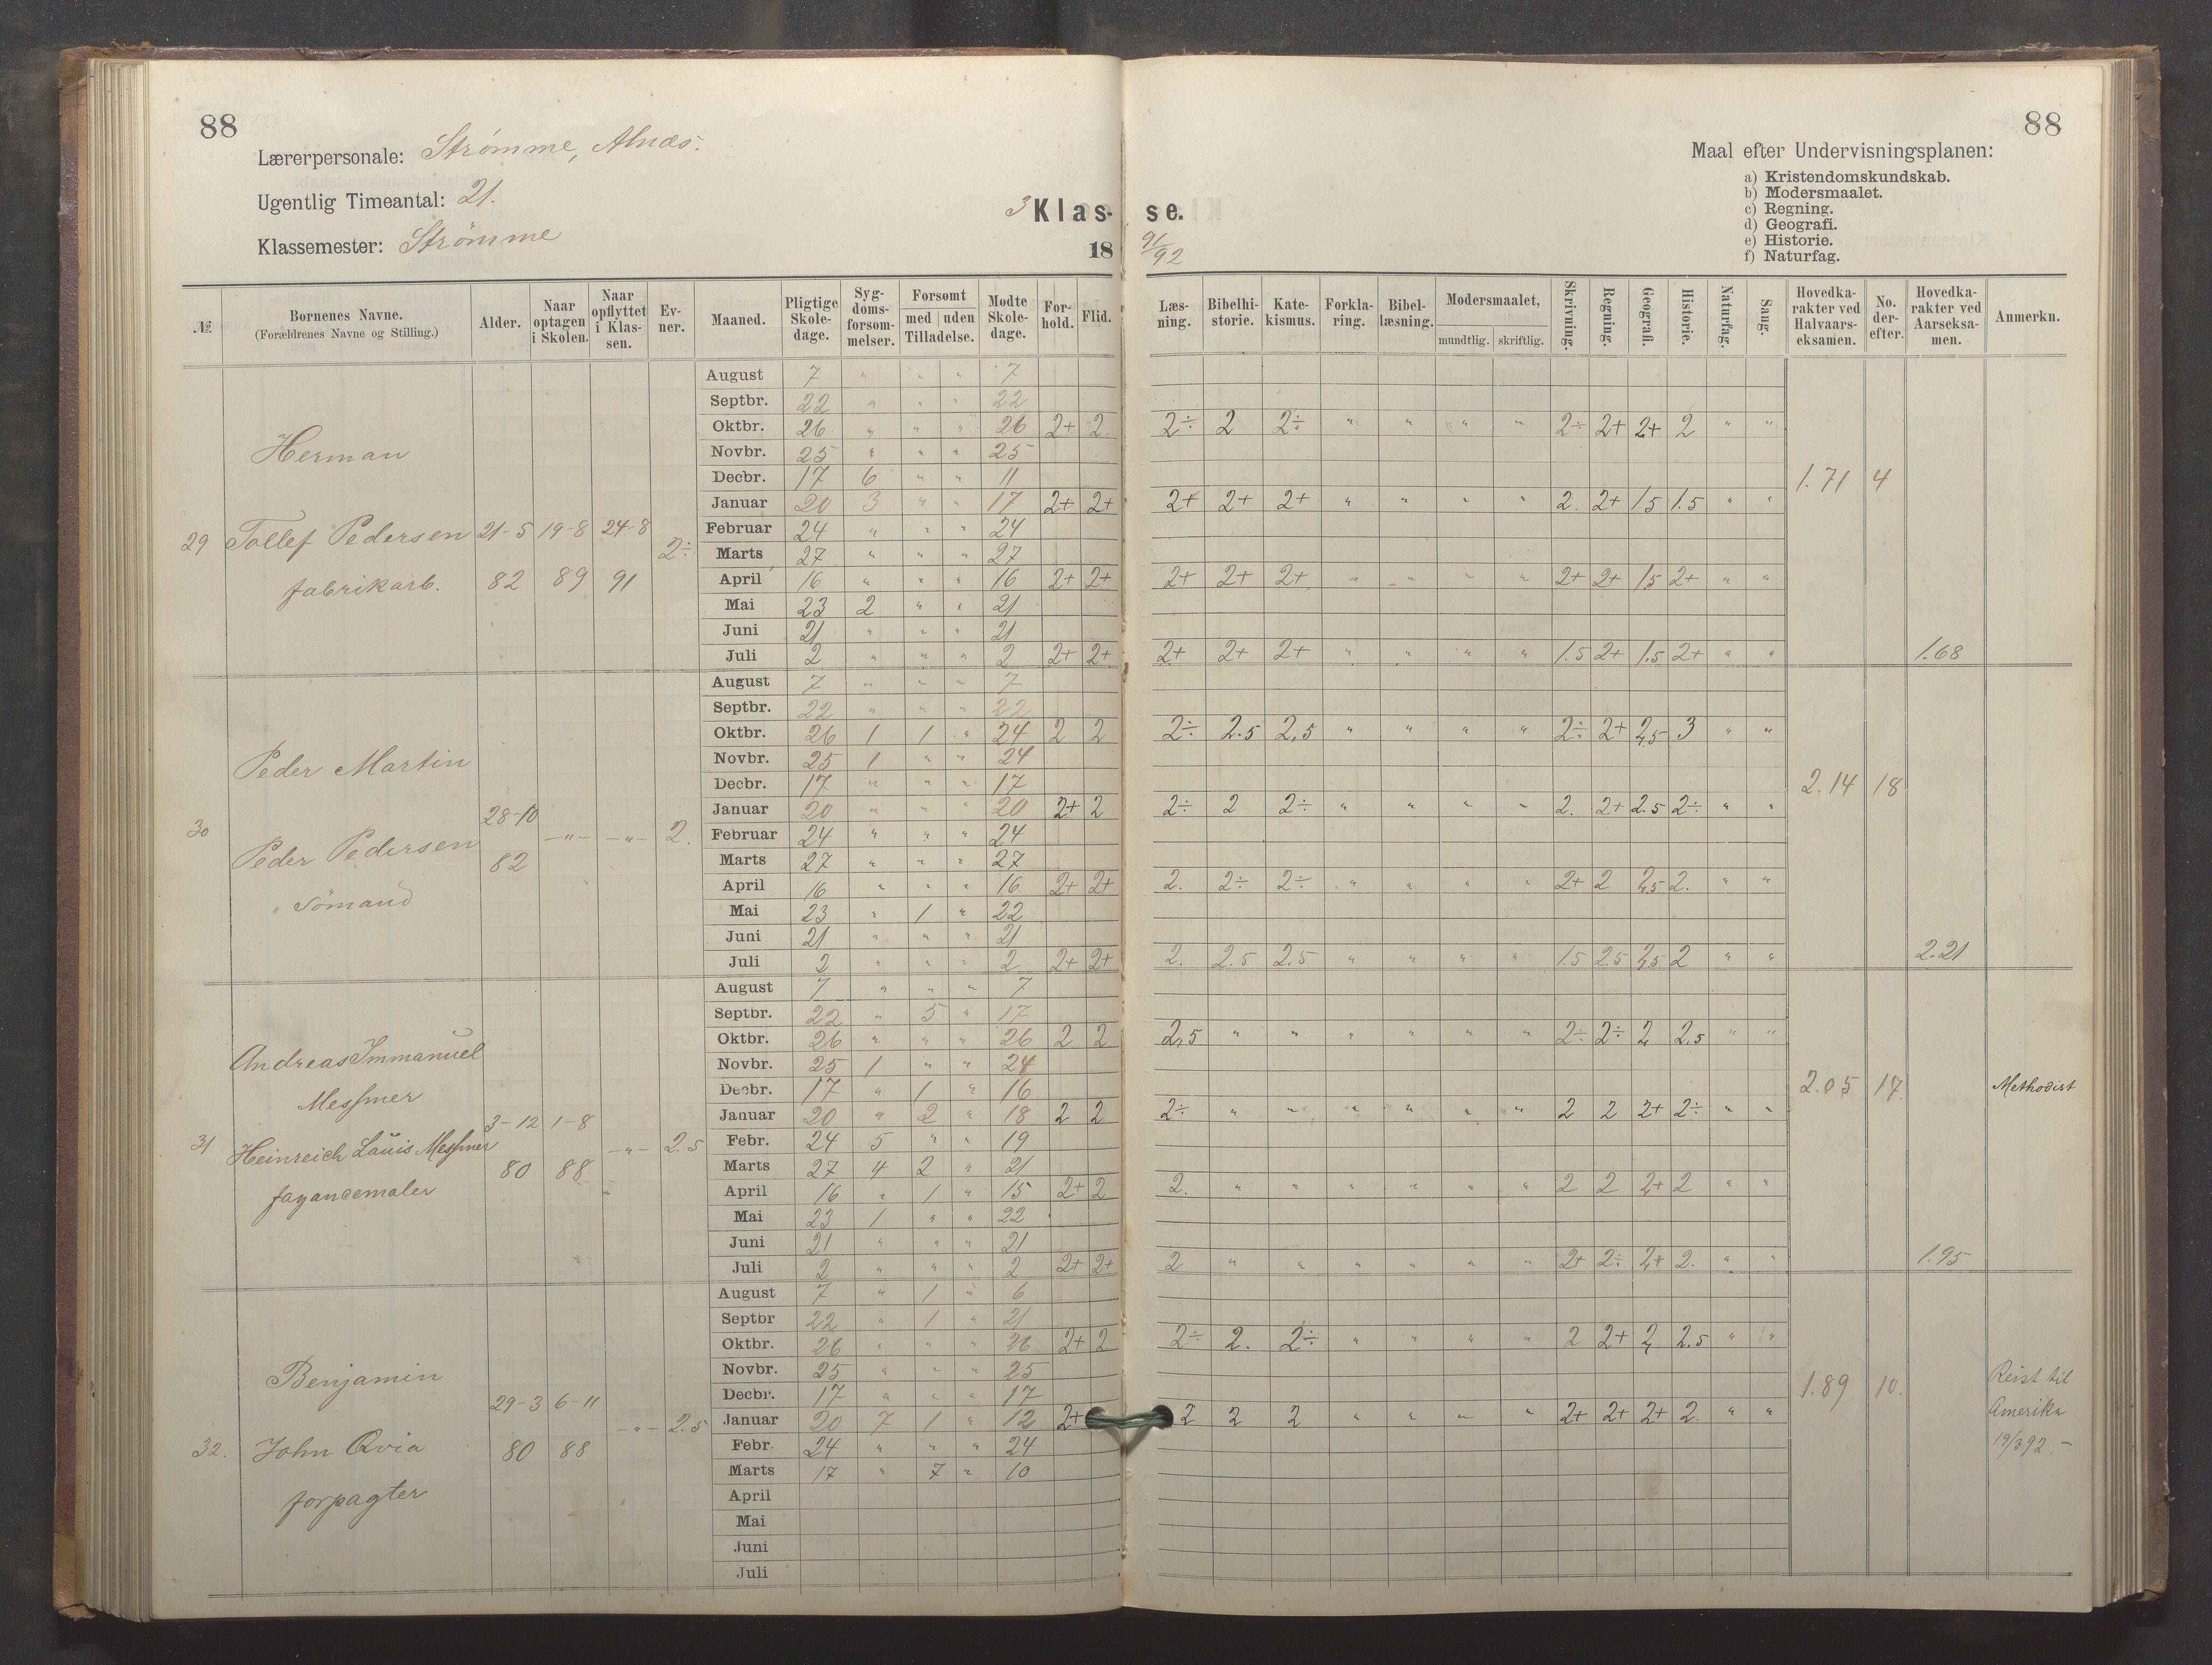 88
Lærerpersonale: Strømme, Alnæs.
Ugentlig Timeantal: 21.
Klassemester: Strømme
3 Klas-
18
№
Børnenes Navne.
(Forældrenes Navne og Stilling.)
Alder.
Naar optagen i Skolen.
Naar opflyttet i Klassen.
Evner.
Maaned.
Pligtige Skoledage.
Sygdomsforsømmelser.
Forsømt
med | uden
Tilladelse.
Mødte Skoledage.
Forhold.
Flid.
29
Herman
Tollef Pedersen
fabrikarb.
21-5 82
19-8 89
24-8 91
2÷
August 7 " " " 7
Septbr. 22 " " " 22
Oktbr. 26 " " " 26 2+ 2
Novbr. 25 " " " 25
Decbr. 17 6 " " 11
Januar 20 3 " " 17 2+ 2+
Februar 24 " " " 24
Marts 27 " " " 27
April 16 " " " 16 2+ 2+
Mai 23 2 " " 21
Juni 21 " " " 21
Juli 2 " " " 2 2+ 2+
30
Peder Martin
Peder Pedersen
Sömand
28-10 82
-"-
-"-
2.
August 7 " " " 7
Septbr. 22 " " " 22
Oktbr. 26 1 1 " 24 2 2
Novbr. 25 1 " " 24
Decbr. 17 " " " 17
Januar 20 " " " 20 2+ 2
Februar 24 " " " 24
Marts 27 " " " 27
April 16 " " " 16 2+ 2+
Mai 23 " 1 " 22
Juni 21 " " " 21
Juli 2 " " " 2 2+ 2+
31
Andreas Immanuel
Messmer
Heinreich Lauis Messmer
fayancemaler
3-12 80
1-8 88
-"-
2.5
August 7 " " " 7
Septbr. 22 " 5 " 17
Oktbr. 26 " " " 26 2 2
Novbr. 25 1 " " 24
Decbr. 17 " 1 " 16
Januar 20 " 2 " 18 2 2
Febr. 24 5 " " 19
Marts 27 4 2 " 21
April 16 " 1 " 15 2+ 2
Mai 23 1 " " 22
Juni 21 " " " 21
Juli 2 " " " 2 2+ 2+
32.
Benjamin
John Qvia
forpagter
29-3 80
6-11 88
-"-
2.5
August 7 " 1 " 6
Septbr 22 " 1 " 21
Oktbr. 26 " " " 26 2+ 2
Novbr. 25 " " " 25
Decbr. 17 " " " 17
Januar 20 7 1 " 12 2+
Febr. 24 " " " 24
Marts 17 " 7 " 10
April
Mai
Juni
Juli
88
Maal efter Undervisningsplanen:
a) Kristendomskundskab.
b) Modersmaalet.
c) Regning.
d) Geografi.
e) Historie.
f) Naturfag.
se.
91/92
Læsning.
Bibelhistorie.
Katekismus.
Forklaring.
Bibellæsning.
Modersmaalet,
mundtlig. skriftlig.
Skrivning.
Regning.
Geografi.
Historie.
Naturfag.
Sang.
Hovedkarakter ved Halvaarseksamen.
No. derefter.
Hovedkarakter ved Aarseksamen.
Anmerkn.
2÷ 2 2÷ " " " " 2÷ 2+ 2+ 2 " "
1.71 4
2+ 2+ 2+ " " " " 2. 2+ 1.5 1.5 " "
2+ 2+ 2+ " " " " 2+ 2+ 1.5 2+ " "
2+ 2+ 2+ " " " " 1.5 2+ 1.5 2+ " " 1.68
2÷ 2.5 2,5 " " " " 2÷ 2+ 2,5 3 " "
2.14 18
2÷ 2 2÷ " " " " 2. 2+ 2.5 2÷ " "
2. 2÷ 2÷ " " " " 2+ 2 2,5 2. " "
2. 2.5 2.5 " " " " 1.5 2.5 2,5 2 " " 2.21
2,5 " " " " " " 2÷ 2÷ 2 2.5 " "
2.05 17. Methodist
2÷ " " " " " " 2 2 2+ 2÷ " "
2. " " " " " " 2 2 2+ 2 " "
2 " " " " " " 2+ 2÷ 2+ 2. " " 1.95
2÷ 2. 2÷ " " " " 2 2+ 2 2.5 " "
1.89 10.
Reist til
Amerika
19/3 92.-
2 2 2 " " " " 2+ 2+ 2+ 2. " "